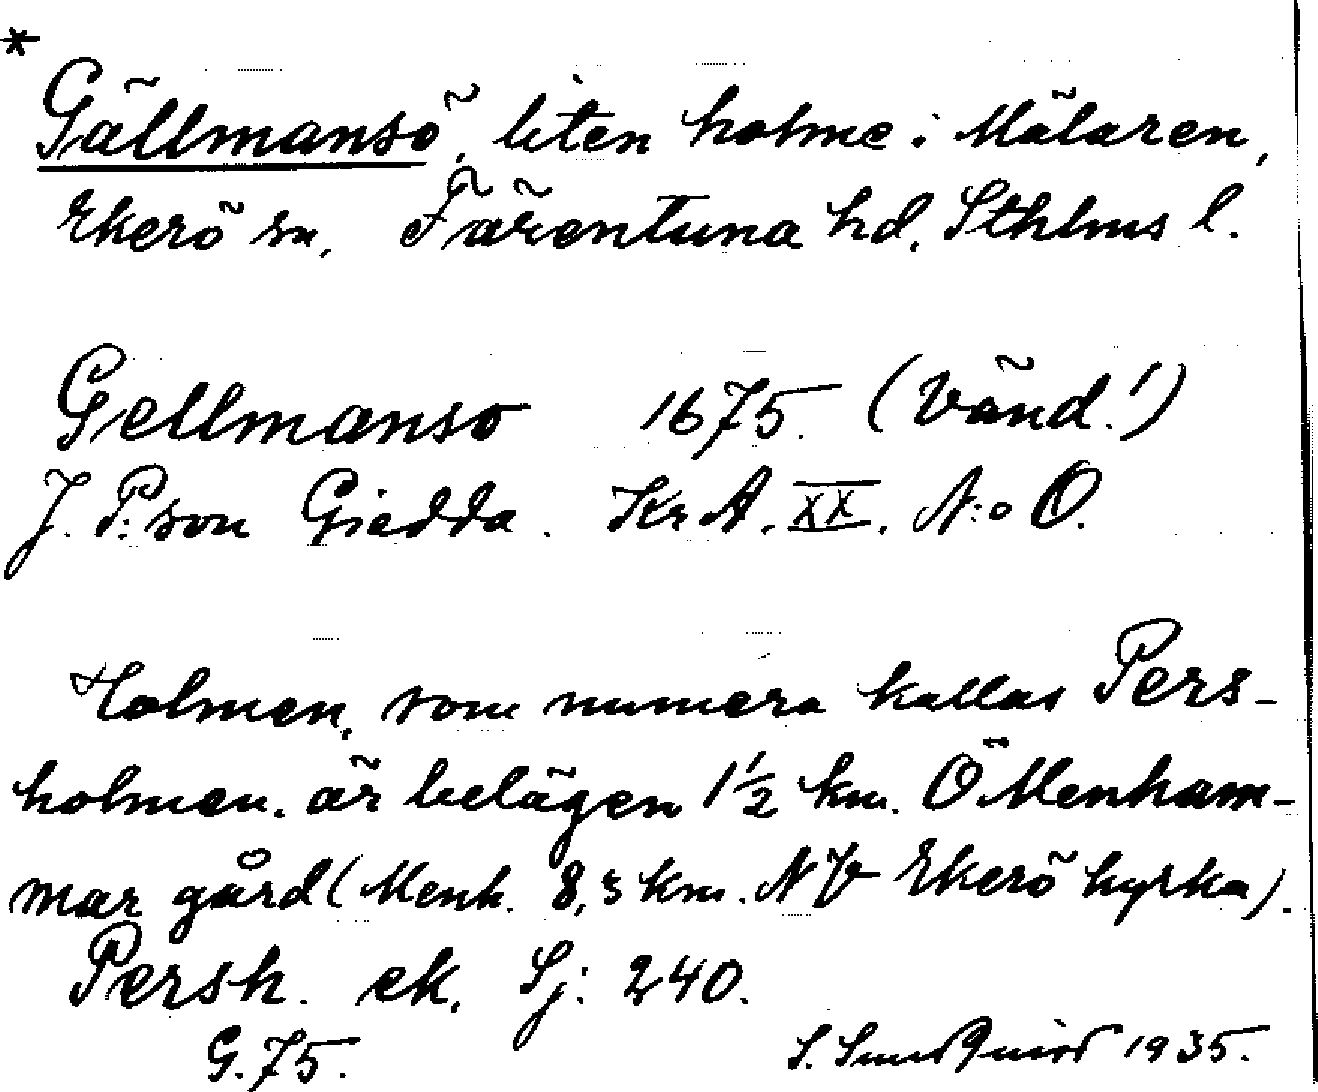 *
Gällmansö, liten holme i Mälaren,
Ekerö sn, Färentuna hd, Sthlms l.
Gellmanso 1675. (Vänd!)
J. P:son Giedda. KrA. XX. N:o O.
Holmen, som numera kallas Pers-
holmen, är belägen 1 1/2 km. Ö Menham-
mar gård (Menh. 8,5 km. NV Ekerö kyrka).
Persh. ek. Sj: 240.
G. 75.
S. 1935.